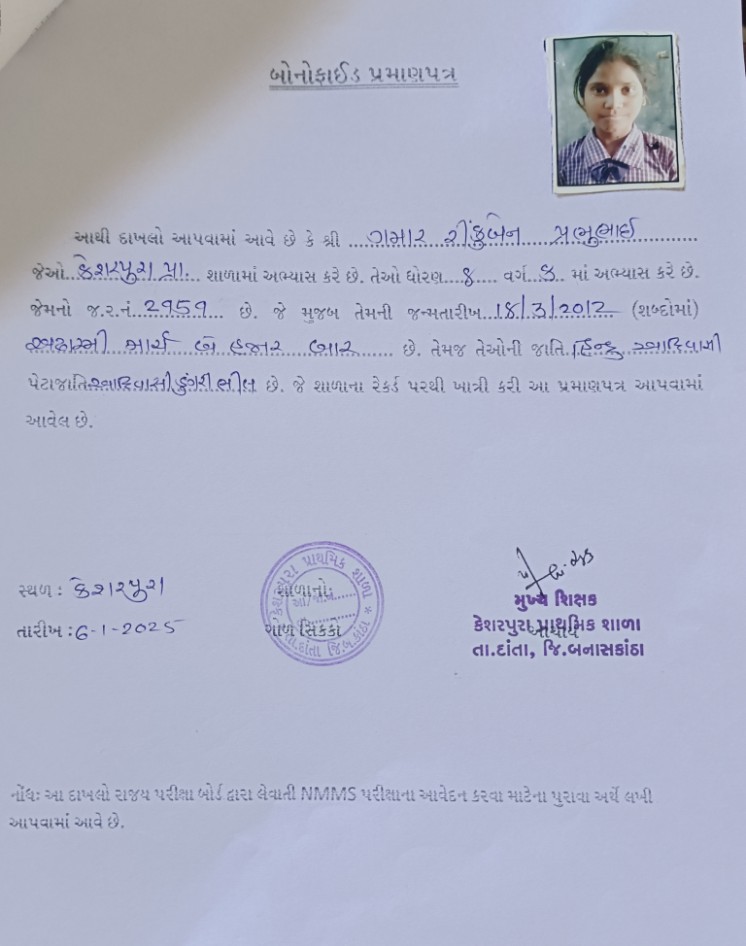 બોનોફાઈડ પ્રમાણપત્ર
આથી દાખલો આપવામાં આવે છે કે શ્રી ....ગમાર રીંકુબેન પ્રભુભાઈ....
જેઓ..કેશરપુરા પ્રા... શાળામાં અભ્યાસ કરે છે. તેઓ ધોરણ...8.... વર્ગ..8.. માં અભ્યાસ કરે છે.
જેમનો જ.ર.નં..2959.... છે. જે મુજબ તેમની જન્મતારીખ..18/3/2012.. (શબ્દોમાં)
માર્ચ બે હજાર બાર....... છે. તેમજ તેઓની જાતિ.હિન્દુ આદિવાસી
પેટાજાતિ.આદિવાસી ડુંગરી ભીલ છે. જે શાળાના રેકર્ડ પરથી ખાત્રી કરી આ પ્રમાણપત્ર આપવામાં
આવેલ છે.
સ્થળ : કેશરપુરા
તારીખ : 6-1-2025
કેશરપુરા પ્રાથમિક શાળા * તા.દાંતા જિ.બ.કાંઠા
શાળાનો
ગોળ સિક્કો
મુખ્ય શિક્ષક
આચાર્ય
કેશરપુરા પ્રાથમિક શાળા
તા.દાંતા, જિ.બનાસકાંઠા
નોંધઃ આ દાખલો રાજય પરીક્ષા બોર્ડ દ્વારા લેવાતી NMMS પરીક્ષાના આવેદન કરવા માટેના પુરાવા અર્થે લખી
આપવામાં આવે છે.